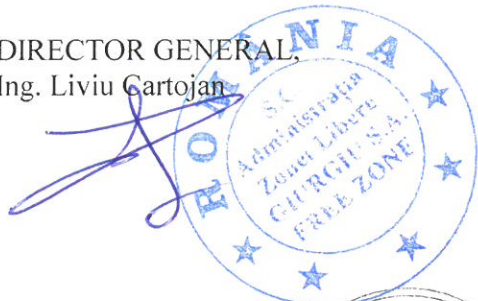 DIRECTOR GENERAL,
Ing. Liviu Cartojan
ROMÂNIA
S.C.
Administrația
Zonei Libere
GIURGIU S.A.
FREE ZONE